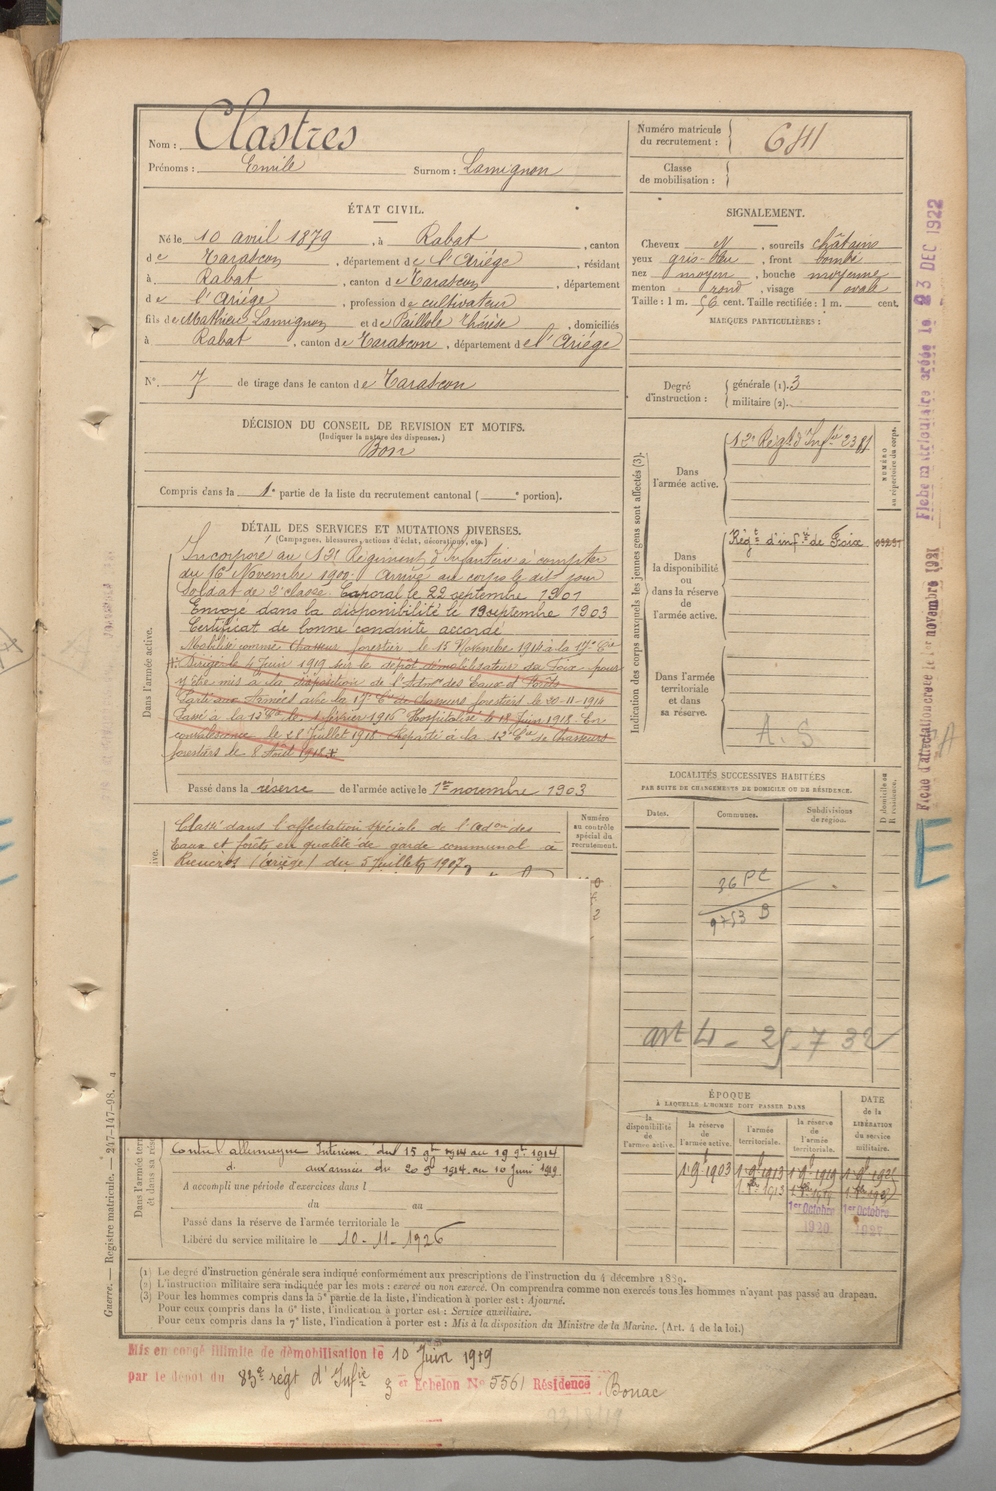 Nom : Clastres
Prénoms : Emile Surnom : Lamignon
Numéro matricule du recrutement : 641
Classe de mobilisation :
ÉTAT CIVIL.
Né le 10 avril 1879, à Rabat, canton
de Tarascon, département de l'Ariége, résidant
à Rabat, canton de Tarascon, département
de l'Ariége, profession de cultivateur
fils de Mathieu Lamignon et de Paillole Thérèse, domiciliés
à Rabat, canton de Tarascon, département de l'Ariége
N°. 7 de tirage dans le canton de Tarascon
SIGNALEMENT.
Cheveux N, sourcils châtains
yeux gris-bleu, front bombé
nez moyen, bouche moyenne
menton rond, visage ovale
Taille : 1 m. 56 cent. Taille rectifiée : 1 m. cent.
MARQUES PARTICULIÈRES :
Degré d'instruction : générale (1). 3
militaire (2).
DÉCISION DU CONSEIL DE REVISION ET MOTIFS.
(Indiquer la nature des dispenses.)
Bon
Compris dans la 1e partie de la liste du recrutement cantonal ( e portion).
DÉTAIL DES SERVICES ET MUTATIONS DIVERSES.
(Campagnes, blessures, actions d'éclat, décorations, etc.)
Dans l'armée active.
Incorporé au 12e Régiment d'Infanterie à compter
du 16 Novembre 1900. Arrivé au corps le dit jour
Soldat de 2e classe. Caporal le 22 septembre 1901
Envoyé dans la disponibilité le 19 septembre 1903
Certificat de bonne conduite accordé
Mobilisé comme Chasseur forestier le 15 Novembre 1914 à la 17e Cie
Dirigé le 4 Juin 1919 sur le dépôt démobilisateur de Foix pour
y être mis à la disposition de l'Adm°n des Eaux et Forêts
Parti aux Armées avec la 17e Cie de Chasseurs forestiers le 20-11-1914
Passé à la 12e Cie le 1 février 1916 Hospitalisé le 18 Juin 1918. En
convalescence le 28 Juillet 1918 Reparti à la 12e Cie de Chasseurs
forestiers le 8 Août 1918
Passé dans la réserve de l'armée active le 1er novembre 1903
Classé dans l'affectation spéciale de l'Adon des
Eaux et forêts en qualité de garde communal à
Rieucros (Ariège) du 5 Juillet 1907
Numéro au contrôle spécial du recrutement.
Indication des corps auxquels les jeunes gens sont affectés (3).
Dans l'armée active.
12e Régt d'Infie 2381
NUMÉRO au répertoire du corps.
Dans la disponibilité ou dans la réserve de l'armée active.
Régt d'infie de Foix
Dans l'armée territoriale et dans sa réserve.
A. S
LOCALITÉS SUCCESSIVES HABITÉES
PAR SUITE DE CHANGEMENTS DE DOMICILE OU DE RÉSIDENCE.
Dates. Communes. Subdivisions de région. D domicile ou R résidence.
36 PC
9753 B
art 4 - 25-7 32
ÉPOQUE
À LAQUELLE L'HOMME DOIT PASSER DANS
la disponibilité de l'armée active.
la réserve de l'armée active.
l'armée territoriale.
la réserve de l'armée territoriale.
DATE de la LIBÉRATION du service militaire.
1 9b 1903 1 9b 1913 1 9b 1919
1er Octobre 1er Octobre
1920
Contre l'allemagne Intérieur du 15 9bre 1914 au 19 9bre 1914
d° aux armées du 20 9b 1914 au 10 Juin 1919
A accompli une période d'exercices dans l
du au
Passé dans la réserve de l'armée territoriale le
Libéré du service militaire le 10-11-1926
(1) Le degré d'instruction générale sera indiqué conformément aux prescriptions de l'instruction du 4 décembre 1889.
(2) L'instruction militaire sera indiquée par les mots : exercé ou non exercé. On comprendra comme non exercés tous les hommes n'ayant pas passé au drapeau.
(3) Pour les hommes compris dans la 5e partie de la liste, l'indication à porter est : Ajourné.
Pour ceux compris dans la 6e liste, l'indication à porter est : Service auxiliaire.
Pour ceux compris dans la 7e liste, l'indication à porter est : Mis à la disposition du Ministre de la Marine. (Art. 4 de la loi.)
Mis en congé illimité de démobilisation le 10 Juin 1919
par le dépôt du 83e régt d'Infie 3 et Echelon No 5561 Résidence Bonac
Guerre. — Registre matricule. — 247-147-98.
Fiche matriculaire créée le 23 DEC 1922
Fiche d'affectation créée le 1er novembre 1921